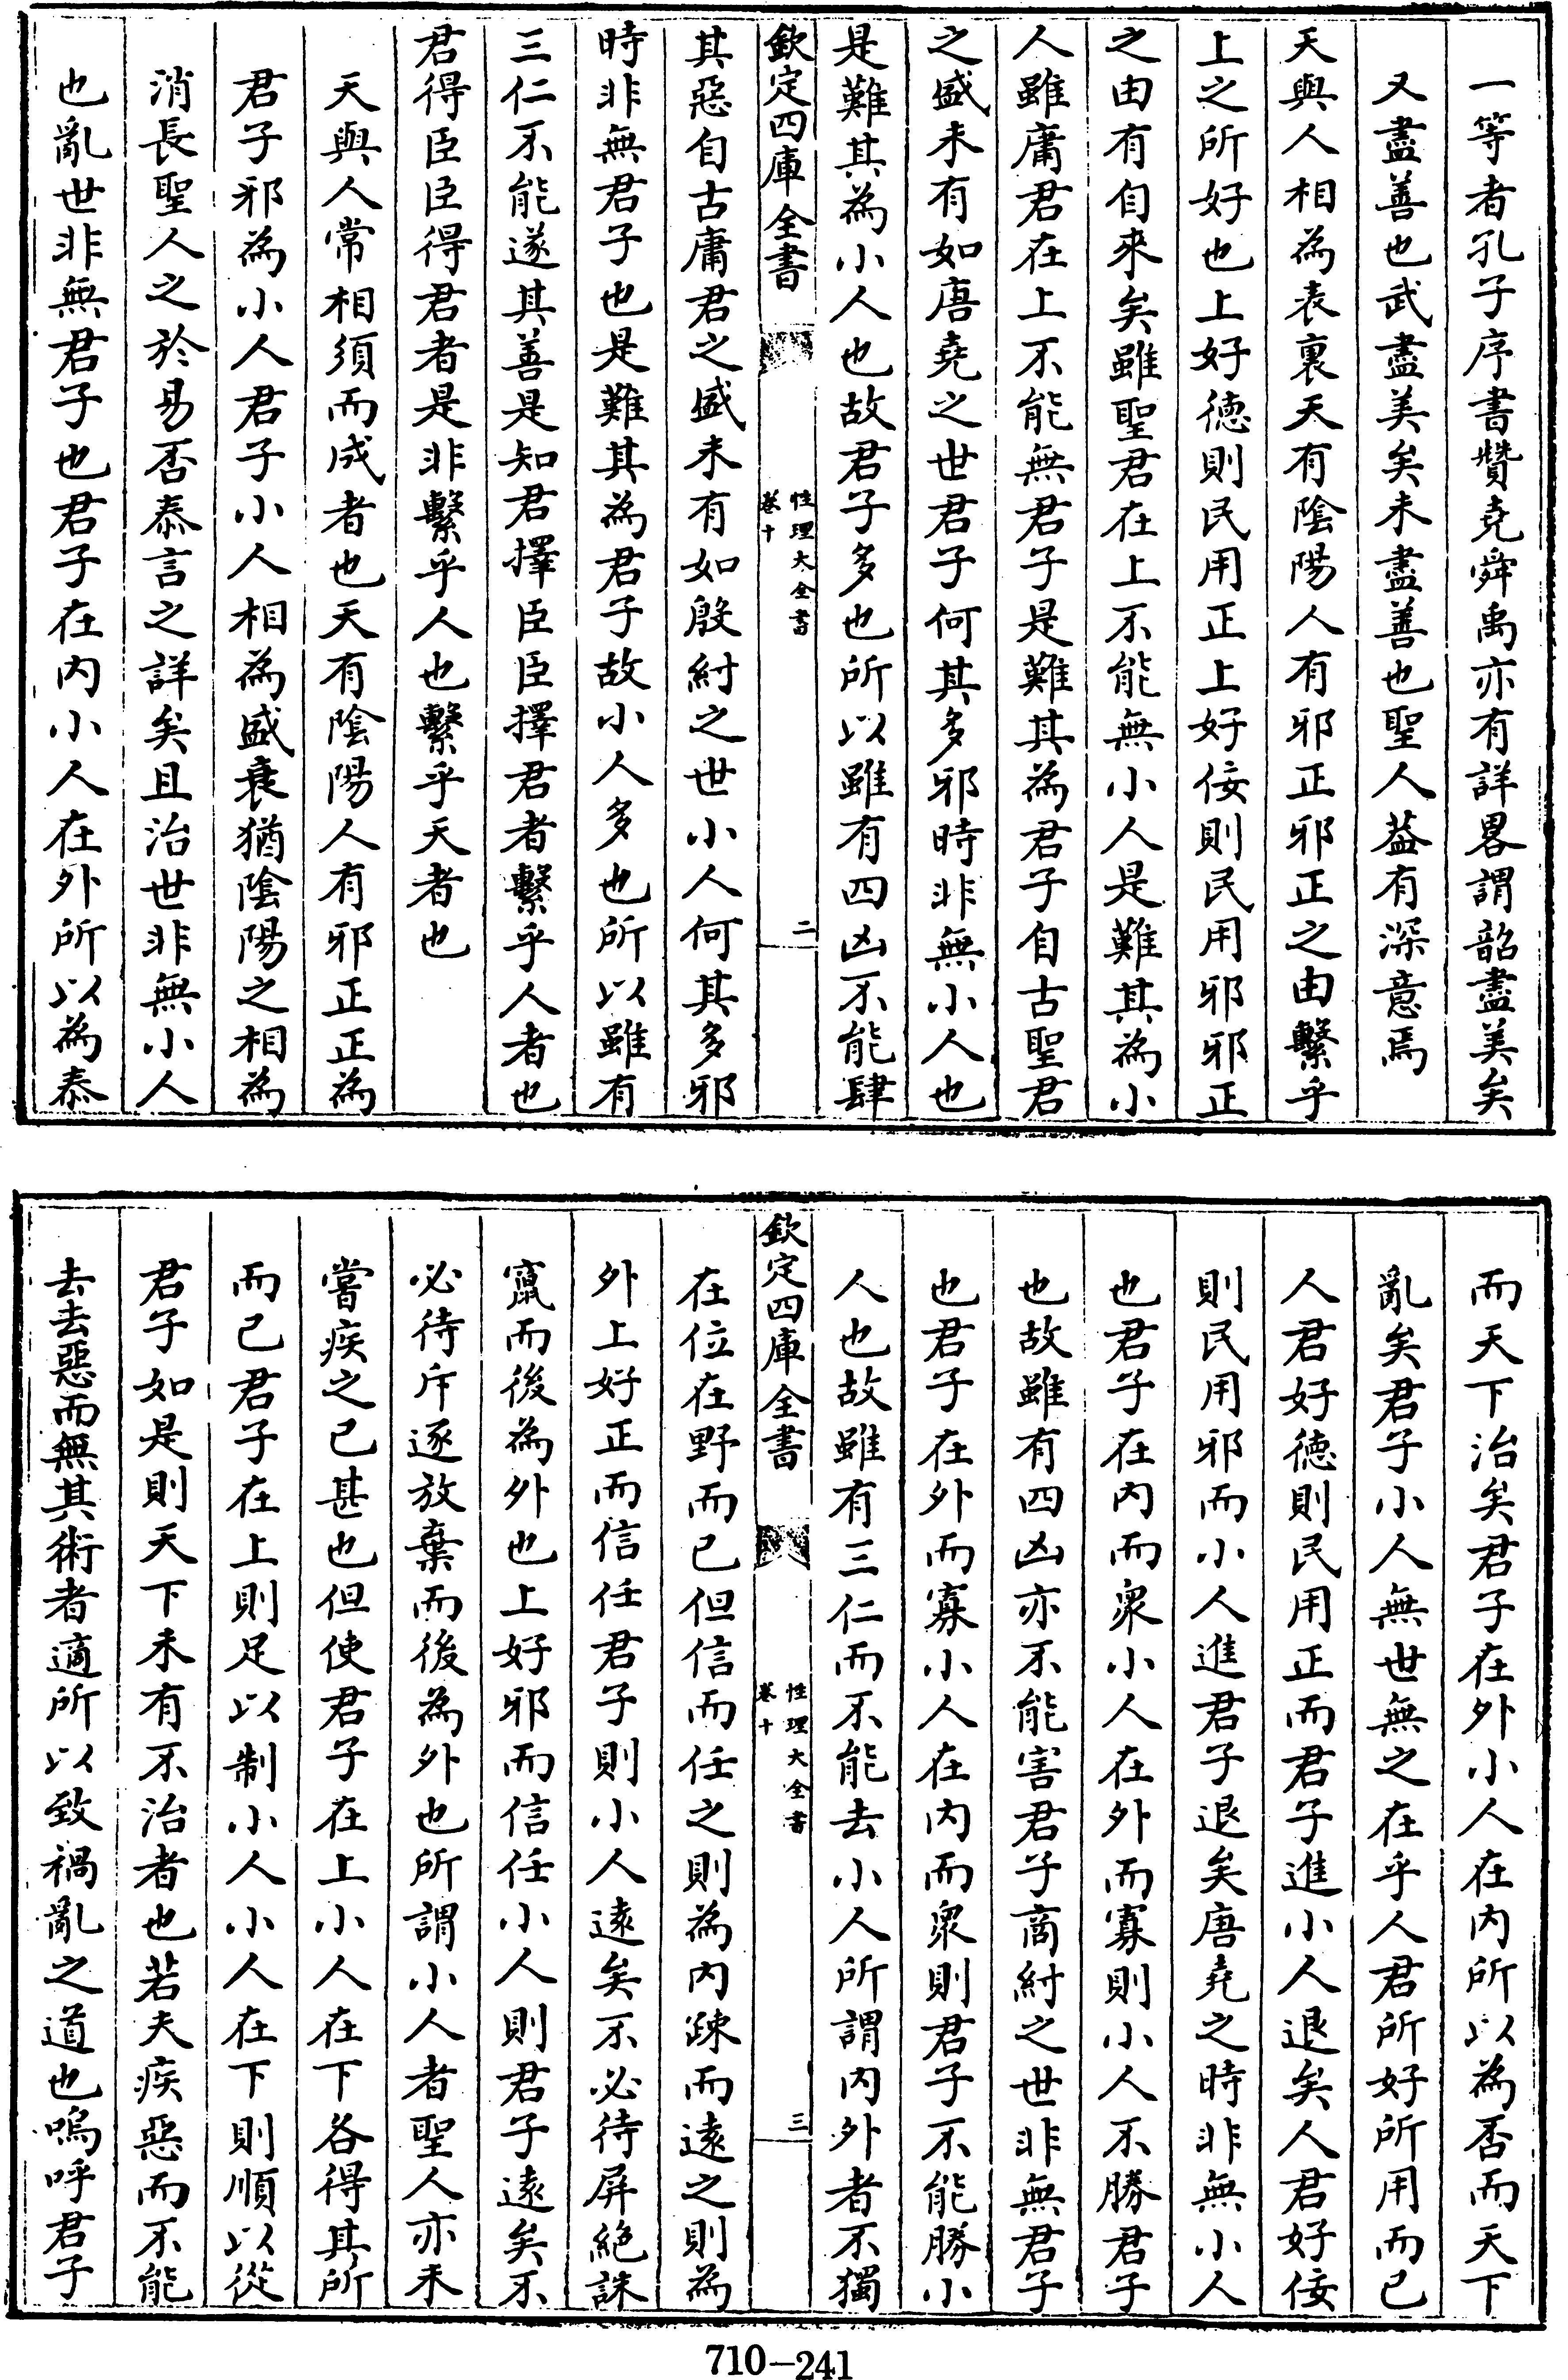 一等者孔子序書贊堯舜禹亦有詳畧謂韶盡美矣
又盡善也武盡美矣未盡善也聖人葢有深意焉
天與人相為表裏天有陰陽人有邪正邪正之由繫乎
上之所好也上好徳則民用正上好佞則民用邪邪正
之由有自來矣雖聖君在上不能無小人是難其為小
人雖庸君在上不能無君子是難其為君子自古聖君
之盛未有如唐堯之世君子何其多邪時非無小人也
是難其為小人也故君子多也所以雖有四凶不能肆
欽定四庫全書
性理大全書
卷十
二
其惡自古庸君之盛未有如殷紂之世小人何其多邪
時非無君子也是難其為君子故小人多也所以雖有
三仁不能遂其善是知君擇臣臣擇君者繫乎人者也
君得臣臣得君者是非繫乎人也繫乎天者也
天與人常相須而成者也天有陰陽人有邪正正為
君子邪為小人君子小人相為盛衰猶陰陽之相為
消長聖人之於易否泰言之詳矣且治世非無小人
也亂世非無君子也君子在内小人在外所以為泰
而天下治矣君子在外小人在内所以為否而天下
亂矣君子小人無世無之在乎人君所好所用而已
人君好徳則民用正而君子進小人退矣人君好佞
則民用邪而小人進君子退矣唐堯之時非無小人
也君子在内而衆小人在外而寡則小人不勝君子
也故雖有四凶亦不能害君子商紂之世非無君子
也君子在外而寡小人在内而衆則君子不能勝小
人也故雖有三仁而不能去小人所謂内外者不獨
欽定四庫全書
性理大全書
卷十
三
在位在野而已但信而任之則為内疎而遠之則為
外上好正而信任君子則小人遠矣不必待屏絶誅
竄而後為外也上好邪而信任小人則君子遠矣不
必待斥逐放棄而後為外也所謂小人者聖人亦未
嘗疾之已甚也但使君子在上小人在下各得其所
而已君子在上則足以制小人小人在下則順以從
君子如是則天下未有不治者也若夫疾惡而不能
去去惡而無其術者適所以致禍亂之道也嗚呼君子
710-241